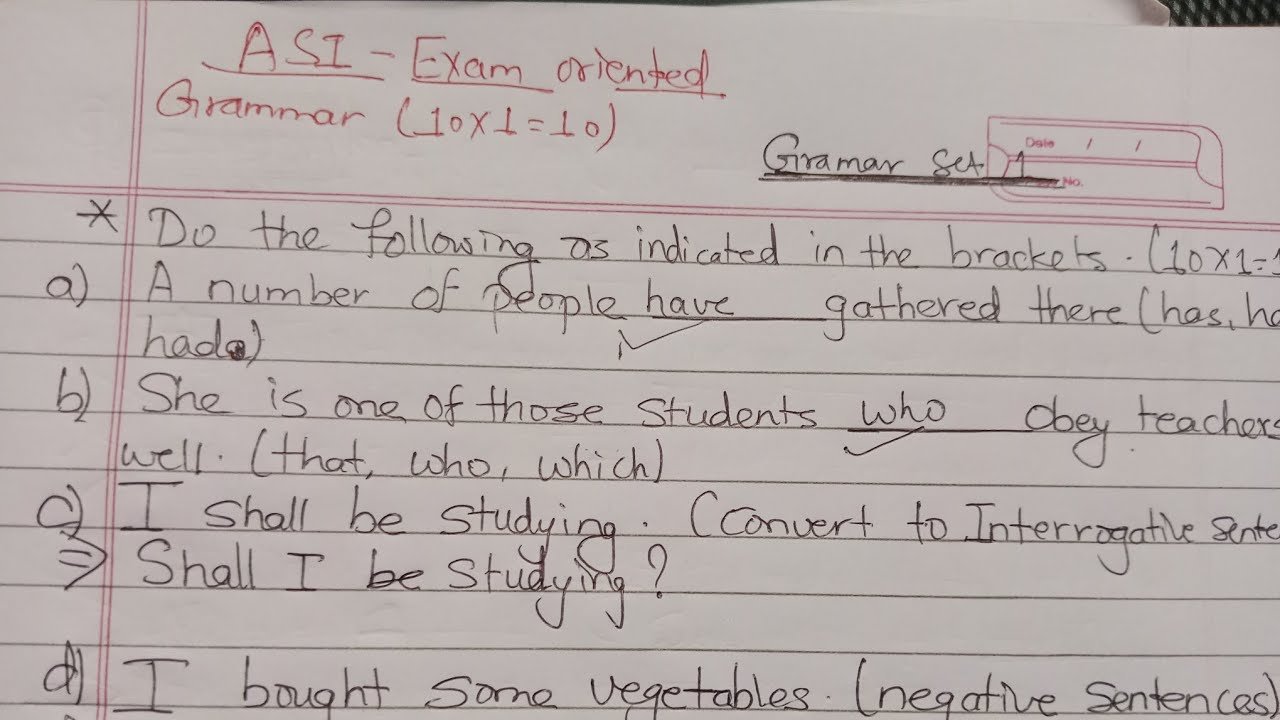 ASI - Exam oriented
Grammar (10x1=10)
Date / /
Gramar Set 1
No.
* Do the following as indicated in the brackets. (10x1=1
a) A number of people have gathered there (has, ha
had)
b) She is one of those students who obey teachers
well. (that, who, which)
c) I shall be studying. (Convert to Interrogative sente
⇒ Shall I be studying?
d) I bought some vegetables. (negative sentences)